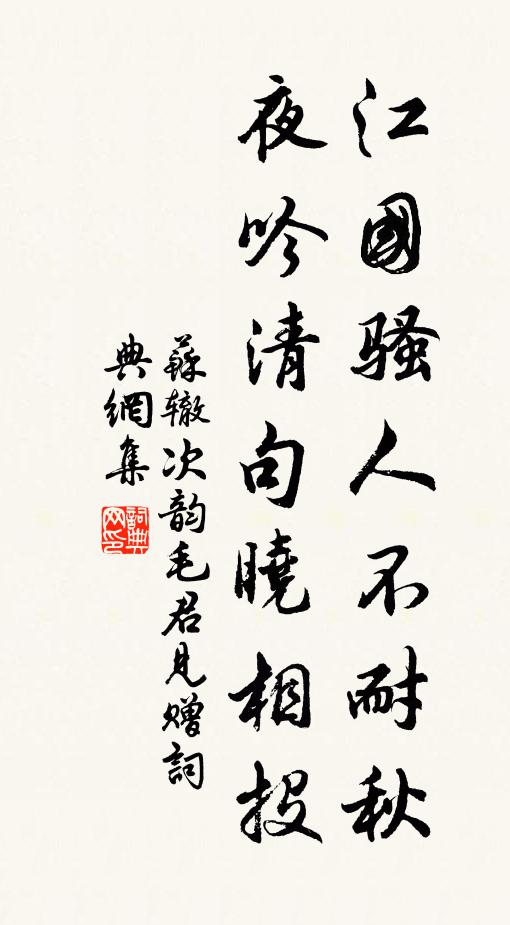 江國騷人不耐秋
夜吟清句曉相投
蘇辙次韵毛君見赠詞
典網集
詞典網印